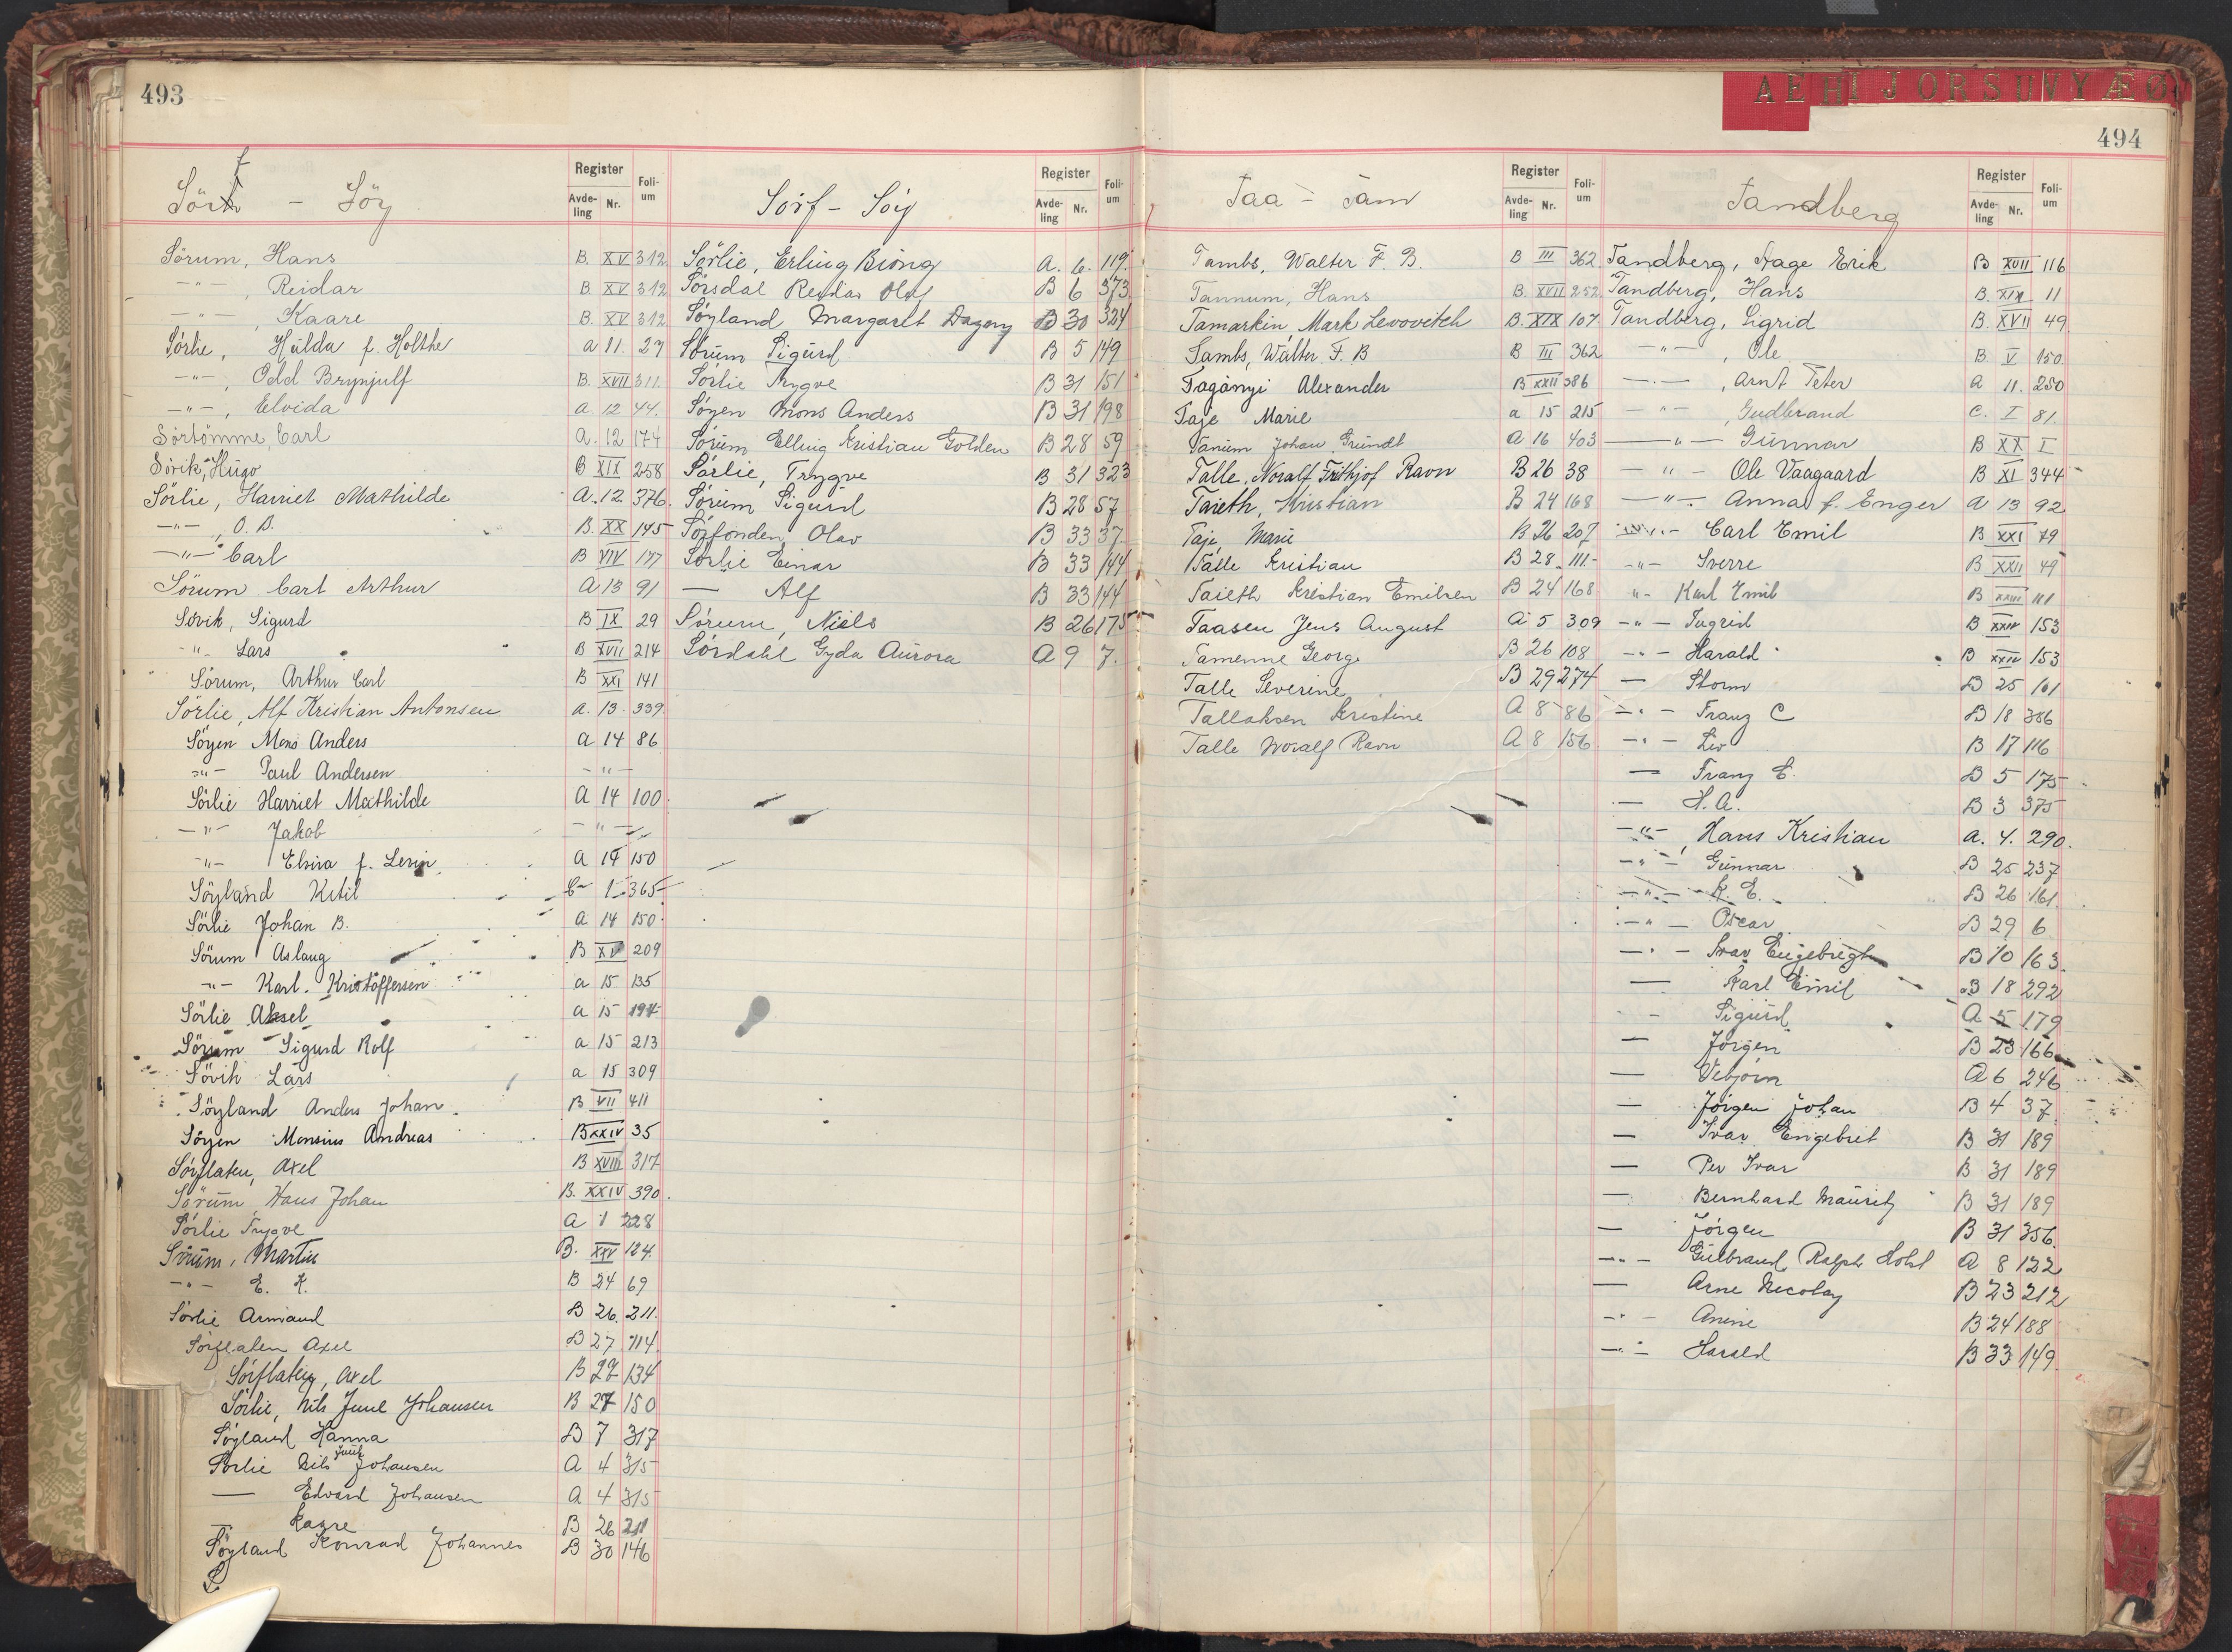 493
Sörf - Söy
Register
Avdeling Nr.
Folium
Sörum, Hans B. XV 312
-"-, Reidar B XV 312
-"-, Kaare B. XV 312
Sörlie, Hulda f. Holthe a 11. 27
-"-, Odd Brynjulf B. XVII 311.
-"-, Elvida a. 12 44.
Sörtömme, Carl A. 12 174
Sörvik, Hugo B XIX 258
Sörlie, Harriet Mathilde A. 12 376.
-"-, O. B. B. XX 145
-"- Carl B VIV 177
Sörum Carl Arthur A 13 91
Sövik, Sigurd B IX 29
-"- Lars B XVII 214
Sörum, Arthur Carl B XXI 141
Sörlie, Alf Kristian Antonsen a. 13. 339.
Söyen Mons Anders a 14 86
-"- Paul Andersen -"-
Sörlie Harriet Mathilde A 14 100.
-"- Jakob -"-
-"- Elvira f. Levin a 14 150
Söyland Ketil C 1 365
Sörlie Johan B. a 14 150.
Sörum Aslaug B XV 209
-"- Karl. Kristoffersen a 15 135
Sörlie Aksel a 15 194
Sörum Sigurd Rolf a 15 213
Sövik Lars a 15 309
Söyland Anders Johan. B VII 411
Söyen Monsius Andreas B XXIV 35
Sörflaten, Axel B XVIII 317
Sörum, Hans Johan B. XXIV 390.
Sörlie Trygve A 1 228
Sörum, Martin B. XXV 124.
-"- E. K. B 24 69
Sörlie Armand B 26. 211.
Sörflaten Axel B 27 114
Sörflaten, Axel B 27 134
Sörlie, Nils Juul Johansen B 27 150
Söyland Hanna B 7 317
Sörlie Nils Juul Johansen A 4 315
— Edvard Johansen A 4 315
— Kaare B 26 211
Söyland Konrad Johannes B 30 146
S
Sörf - Söy
Register
Avdeling Nr.
Folium
Sörlie, Erling Biong A. 6. 119.
Sörsdal Reidar Olaf B 6 373
Söyland Margaret Dagny B 30 324
Sörum Sigurd B 5 149
Sörlie Trygve B 31 151
Söyen Mons Anders B 31 198
Sörum Elling Kristian Golden B 28 59
Sörlie, Trygve B 31 323
Sörum Sigurd B 28 57
Sörfonden, Olav B 33 37.
Sörlie Einar B 33 144
— Alf B 33 144
Sörum, Niels B 26 175
Sördahl Gyda Aurora A 9 7.
A E H I J O R S U V Y Æ Ø
494
Taa - Tam
Register
Avdeling Nr.
Folium
Tambs, Walter F. B. B III 362
Tannum, Hans B. XVII 252
Tamarkin, Mark Levovitch B. XIX 107
Tambs, Walter F. B B III 362
Tagányi Alexander B XXII 386
Taje Marie a 15 215
Tanum Johan Grundt A 16 403
Talle, Noralf Frithjof Ravn B 26 38
Taieth, Kristian B 24 168
Taje Marie B. 26 207
Talle Kristian B 28. 111.-
Taieth Kristian Emilsen B 24 168
Taasen Jens August A 5 309
Tamenne Georg B 26 108
Talle Severine B 29 274
Tallaksen Kristine A 8 86
Talle Noralf Ravn A 8 156
Tandberg
Register
Avdeling Nr.
Folium
Tandberg, Aage Erik B XVII 116
Tandberg, Hans B. XIX 11
Tandberg, Sigrid B. XVII 49
-"-, Ole B. V 150.
-"-, Arnt Peter A 11. 250
-"-, Gudbrand C. I 81.
-"- Gunnar B XX I
-"- Ole Vaagaard B XI 344
-"- Anna f. Enger A 13 92
-"- Carl Emil B XXI 79
-"- Sverre B XXII 49
"- Karl Emil B XXIII 111
-"- Ingrid B XXIV 153
-"- Harald B XXIV 153
— Storm B 25 101
-"- Franz C B 18 386
-"- Liv B 17 116
— Franz E. B 5 175
— H. A. B 3 375
-"-, Hans Kristian A. 4. 290.
-"- Gunnar B 25 237
-"- K. E. B 26 161.
-"- Oscar B 29 6
-"- Ivar Engebregt B 10 163.
— Karl Emil B 18 292
-- Sigurd A 5 179
— Jörgen B 23 166
— Vebjörn A 6 246
— Jörgen Johan B 4 37
— Ivar Engebret B 31 189
— Per Ivar B 31 189
— Bernhard Mauritz B 31 189
— Jörgen B 31 356.
-"- Gulbrand Ralph Holst A 8 122
— Arne Necolay B 23 212
-"- Anine B 24 188
-"- Harald B 33 149